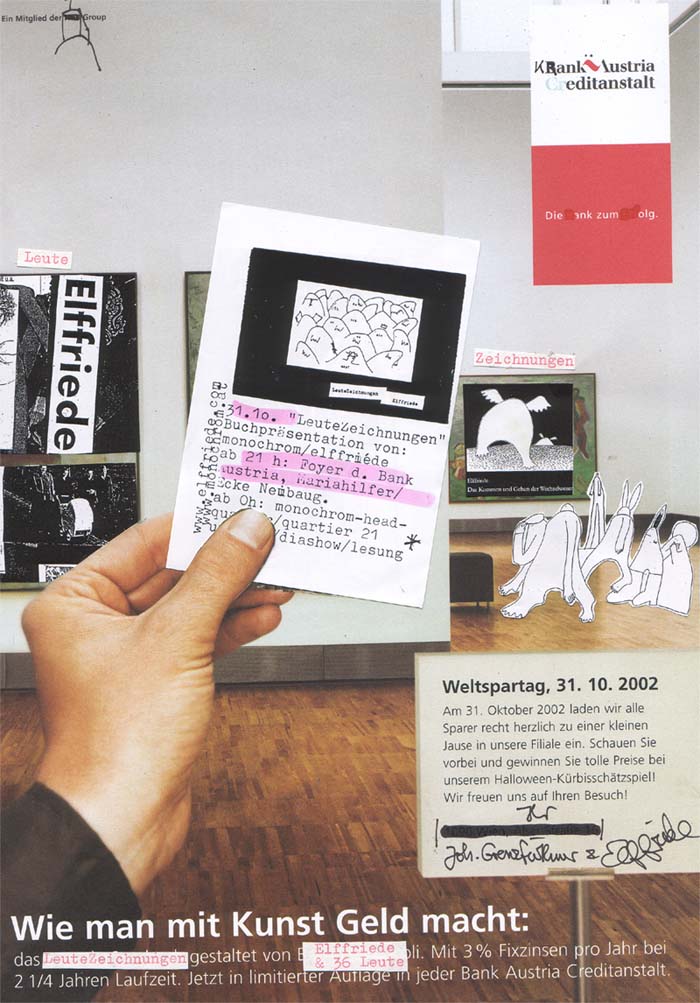 Ein Mitglied der Group
KBank Austria
Creditanstalt
Die ank zum olg.
Leute
Elffriede
LeuteZeichnungen Elffriede
31.10. "LeuteZeichnungen"
Buchpräsentation von:
monochrom/elffriede
ab 21 h: Foyer d. Bank
Austria, Mariahilfer/
Ecke Neubaug.
ab Oh: monochrom-head-
quartier 21
/diashow/lesung *
www.elffriede
www.monochrom
Zeichnungen
Elffriede
Das Kommen und Gehen der
Weltspartag, 31. 10. 2002
Am 31. Oktober 2002 laden wir alle
Sparer recht herzlich zu einer kleinen
Jause in unsere Filiale ein. Schauen Sie
vorbei und gewinnen Sie tolle Preise bei
unserem Halloween-Kürbisschätzspiel!
Wir freuen uns auf Ihren Besuch!
Ihr
Joh. Grenzfurthner & Elffriede
Wie man mit Kunst Geld macht:
das LeuteZeichnungen gestaltet von E Elffriede & 36 Leute oli. Mit 3 % Fixzinsen pro Jahr bei
2 1/4 Jahren Laufzeit. Jetzt in limitierter Auflage in jeder Bank Austria Creditanstalt.